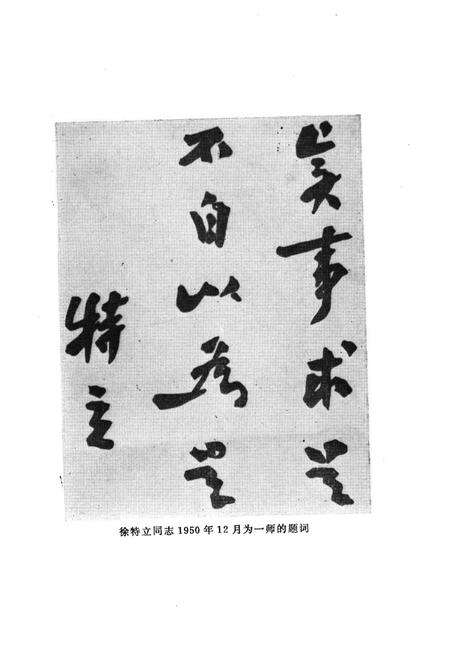 实事求是
不自以为是
特立
徐特立同志1950年12月为一师的题词